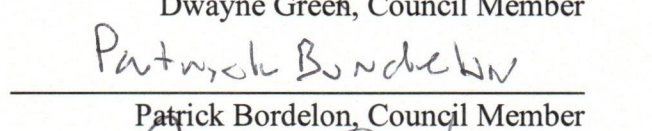 Dwayne Green, Council Member
Patrick Bordelon
Patrick Bordelon, Council Member